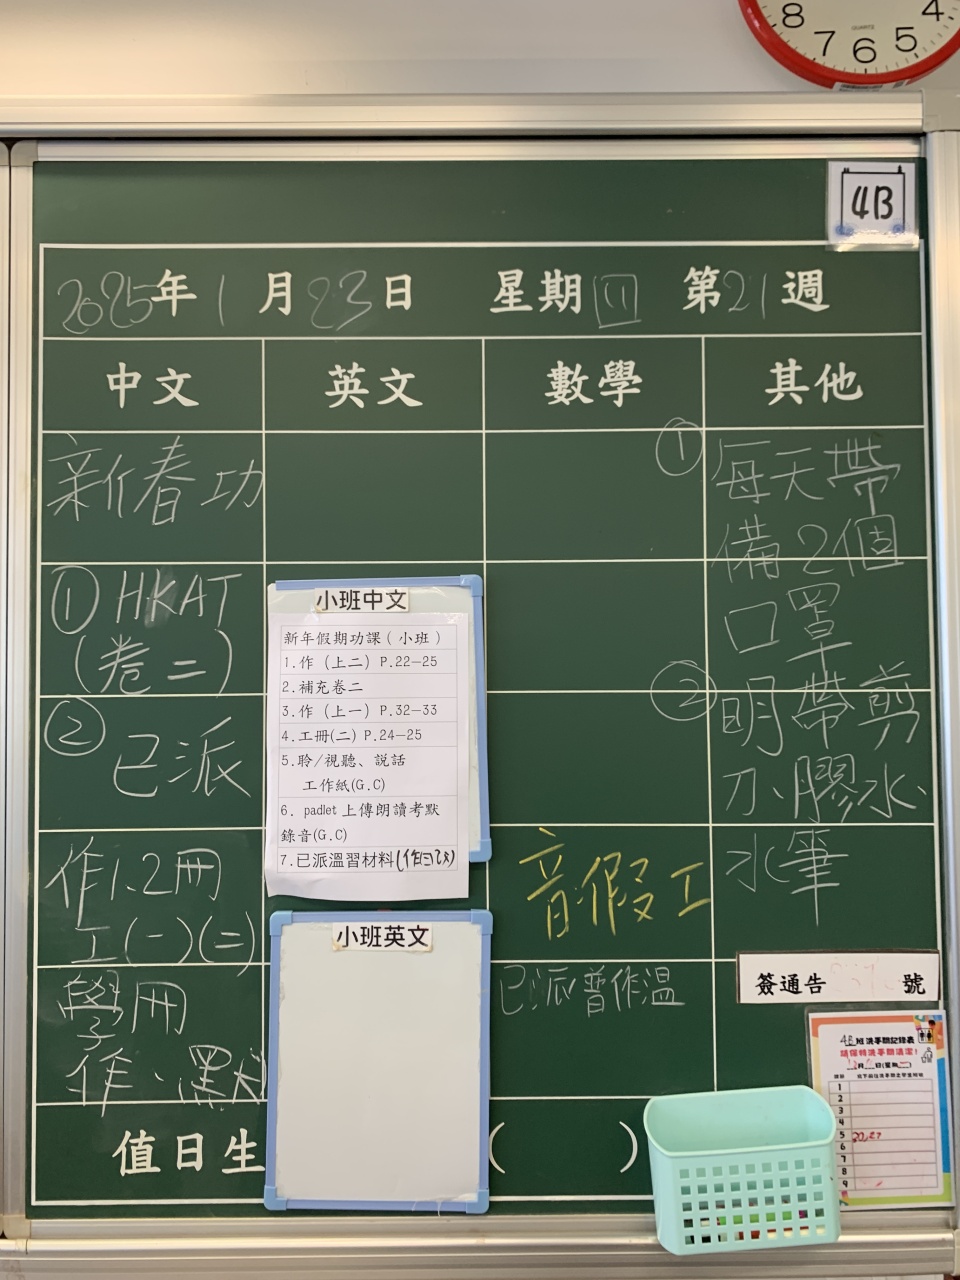 8 7 6 5 4
QUARTZ
4B
2025年1月23日 星期四 第21週
中文 英文 數學 其他
新春功
①HKAT
(卷二)
②已派
作1、2冊
工(一)(二)
學冊
作、默
小班中文
新年假期功課(小班)
1.作(上二)P.22-25
2.補充卷二
3.作(上一)P.32-33
4.工冊(二)P.24-25
5.聆/視聽、說話
工作紙(G.C)
6. padlet上傳朗讀考默
錄音(G.C)
7.已派溫習材料(作
小班英文
音假工
已派普作溫
①每天帶
備2個
口罩
②明帶剪
刀、膠水、
水筆
簽通告 號
4B班洗手間記錄表
請保持洗手間清潔!
月 日(星期
1
2
3
4
5
6
7
8
9
值日生 ( )